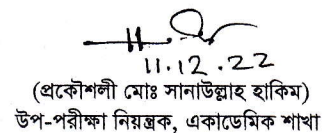 11.12.22
(প্রকৌশলী মোঃ সানাউল্লাহ হাকিম)
উপ-পরীক্ষা নিয়ন্ত্রক, একাডেমিক শাখা